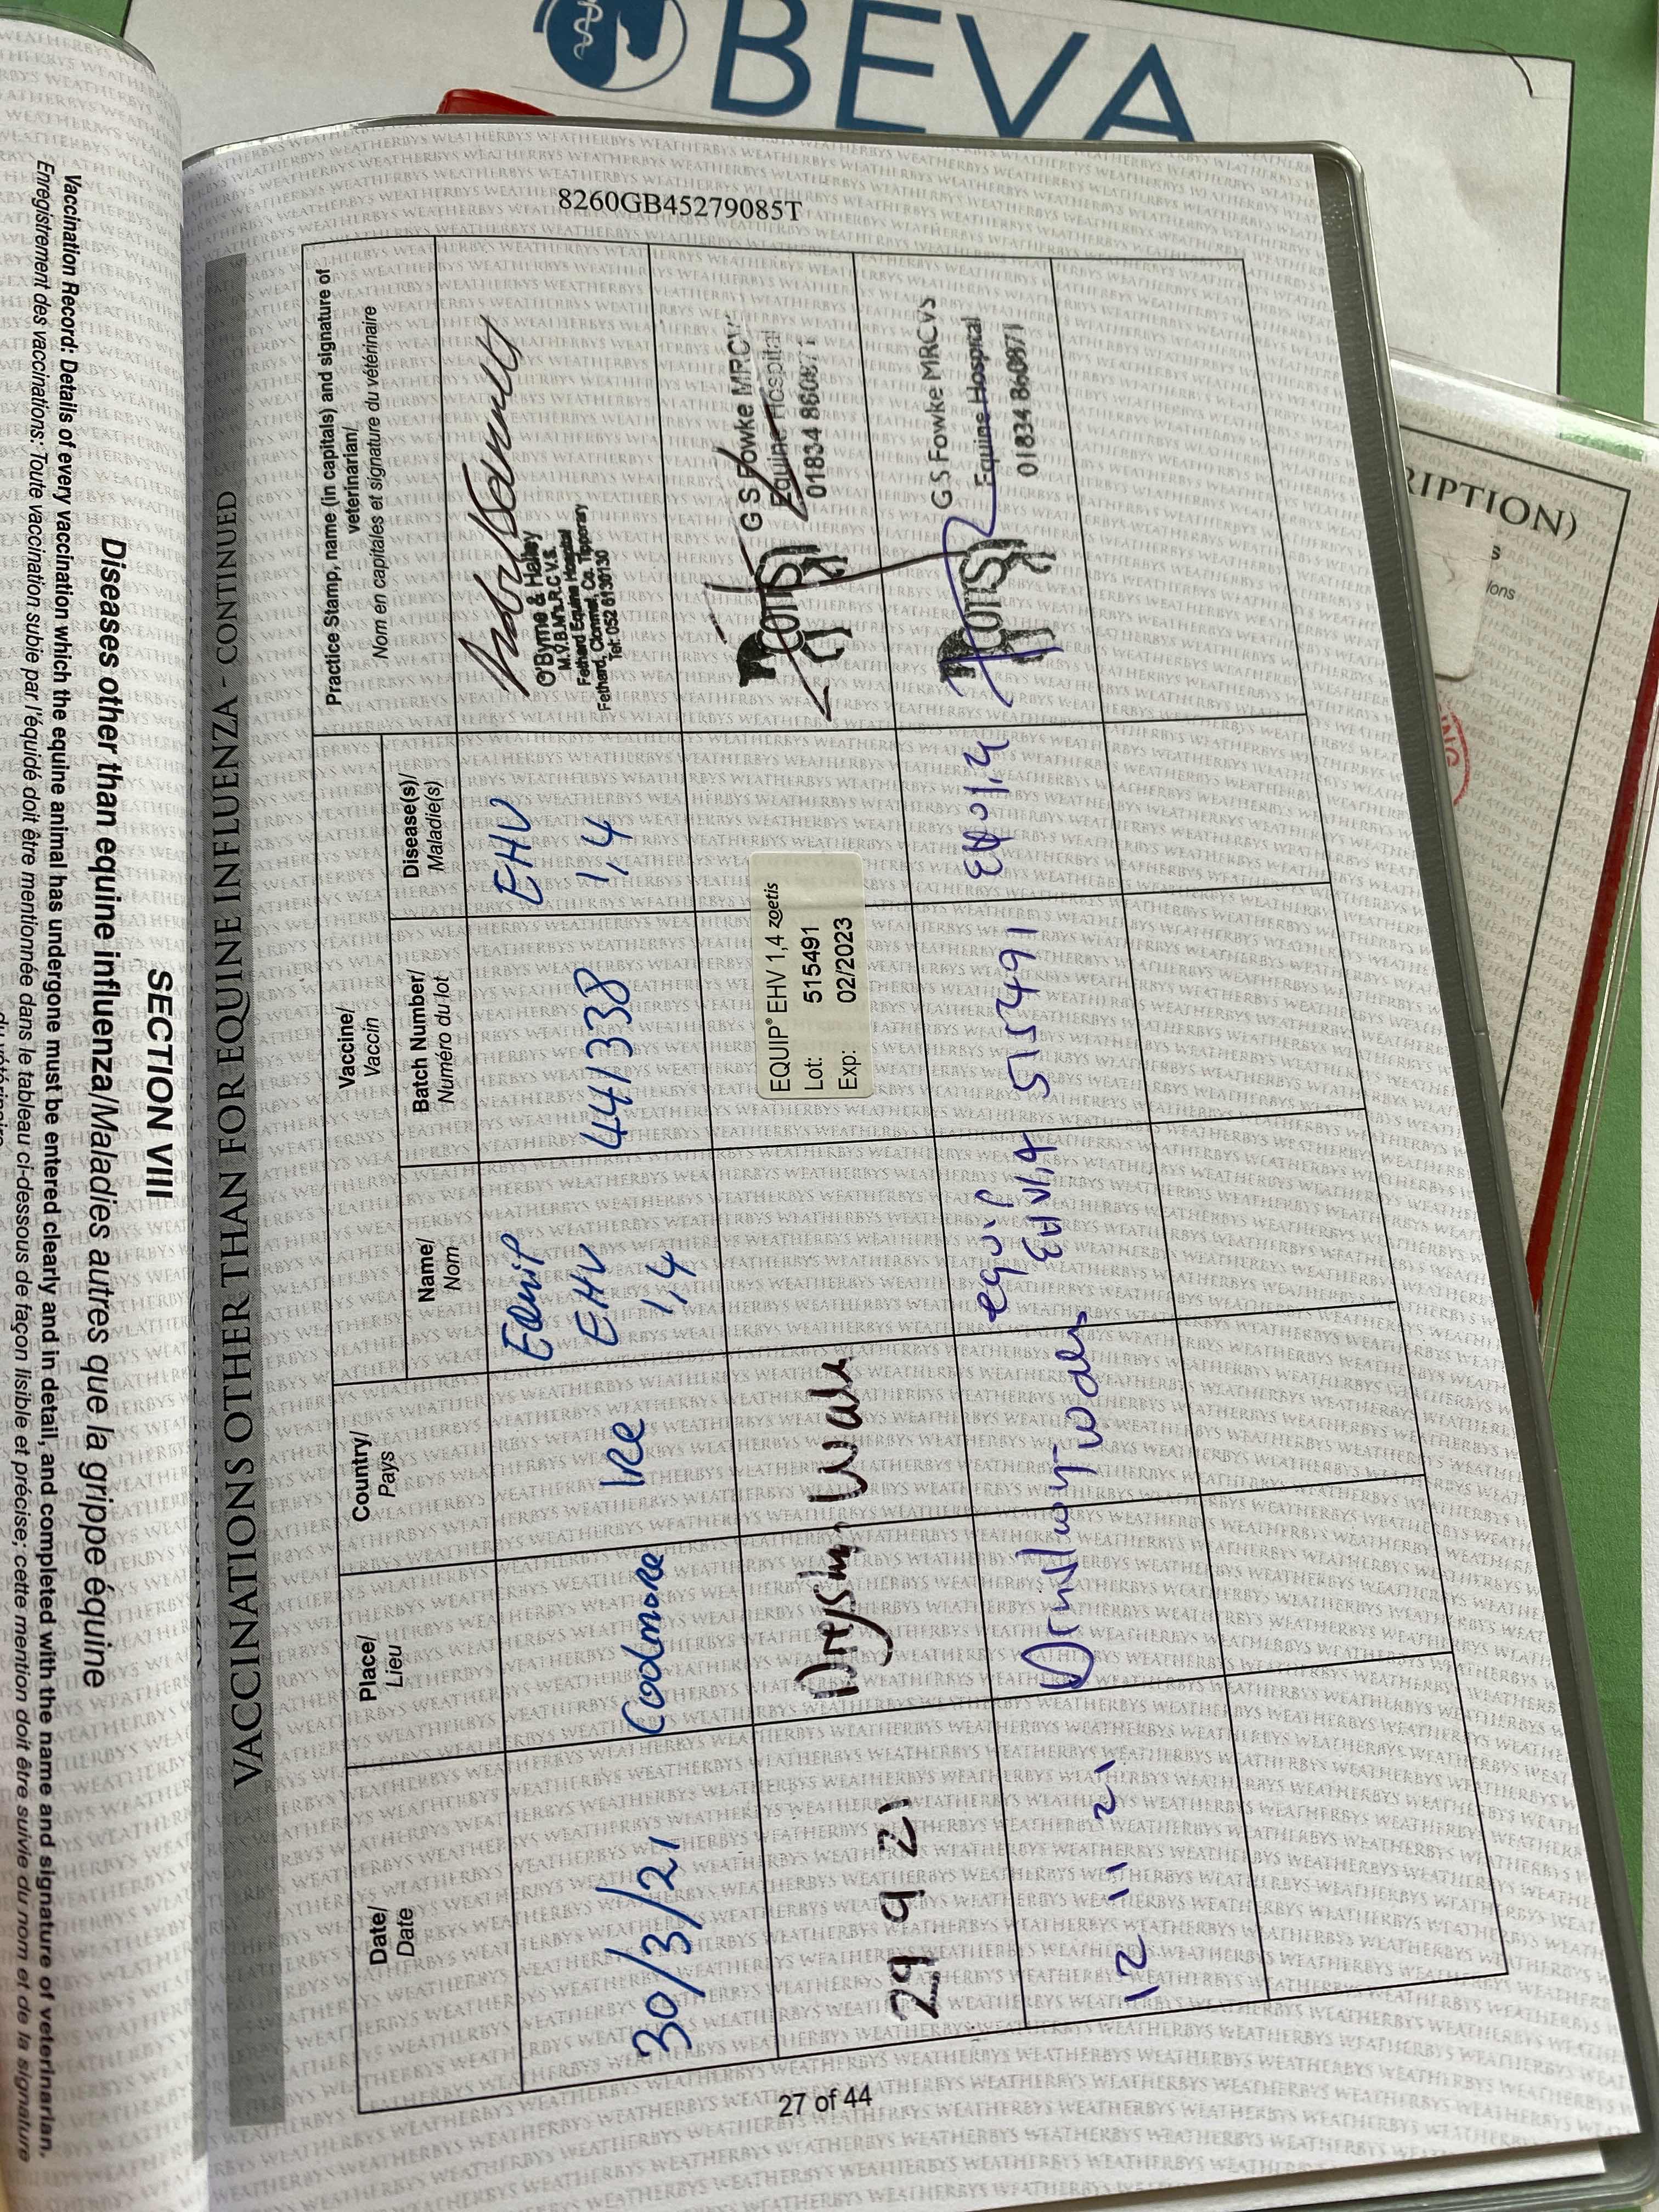 BEVA
RIPTION)
8260GB45279085T
SECTION VIII
Diseases other than equine influenza/Maladies autres que la grippe équine
Vaccination Record: Details of every vaccination which the equine animal has undergone must be entered clearly and in detail, and completed with the name and signature of veterinarian.
Enregistrement des vaccinations: Toute vaccination subie par l'équidé doit être mentionnée dans le tableau ci-dessous de façon lisible et précise; cette mention doit être suivie du nom et de la signature
VACCINATIONS OTHER THAN FOR EQUINE INFLUENZA - CONTINUED
Date/
Date
Place/
Lieu
Country/
Pays
Vaccine/
Vaccin
Name/
Nom
Batch Number/
Numéro du lot
Disease(s)/
Maladie(s)
Practice Stamp, name (in capitals) and signature of
veterinarian/
Nom en capitales et signature du vétérinaire
30/3/21
Codmore
IRe
Equip
EHV
1,4
441338
EHV
1,4
O'Byrne & Halley
M.V.B.M.R.C.V.S.
Fethard Equine Hospital
Fethard, Clonmel, Co. Tipperary
Tel: 052 6130130
29 9 21
EQUIP® EHV 1,4 zoetis
Lot: 515491
Exp: 02/2023
G S Fowke MRCVS
Equine Hospital
01834 860871
12 11 21
equip
EHV1,4
515491
G S Fowke MRCVS
Equine Hospital
01834 860871
27 of 44
WEATHERBYS